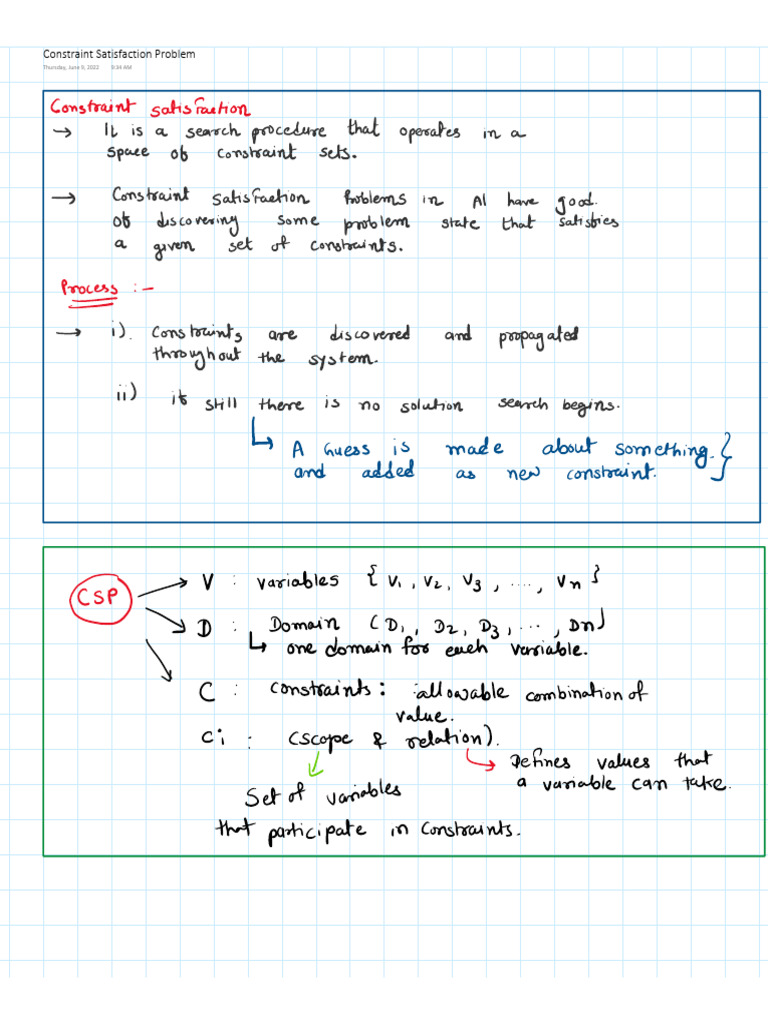 Constraint Satisfaction Problem
Thursday, June 9, 2022 9:34 AM
Constraint satisfaction
→ It is a search procedure that operates in a
space of constraint sets.
→ Constraint satisfaction Problems in AI have good.
of discovering some problem state that satisfies
a given set of constraints.
Process :-
→ i). Constraints are discovered and propagated
throughout the system.
ii) if still there is no solution search begins.
↳ A Guess is made about something.}
and added as new constraint.
CSP
→ V : variables { V1, V2, V3, ...., Vn }
→ D : Domain (D1, D2, D3, ..., Dn)
↳ one domain for each variable.
→ C : constraints : allowable combination of
value.
Ci : (scope & relation).
→ Defines values that
a variable can take.
Set of variables
that participate in constraints.